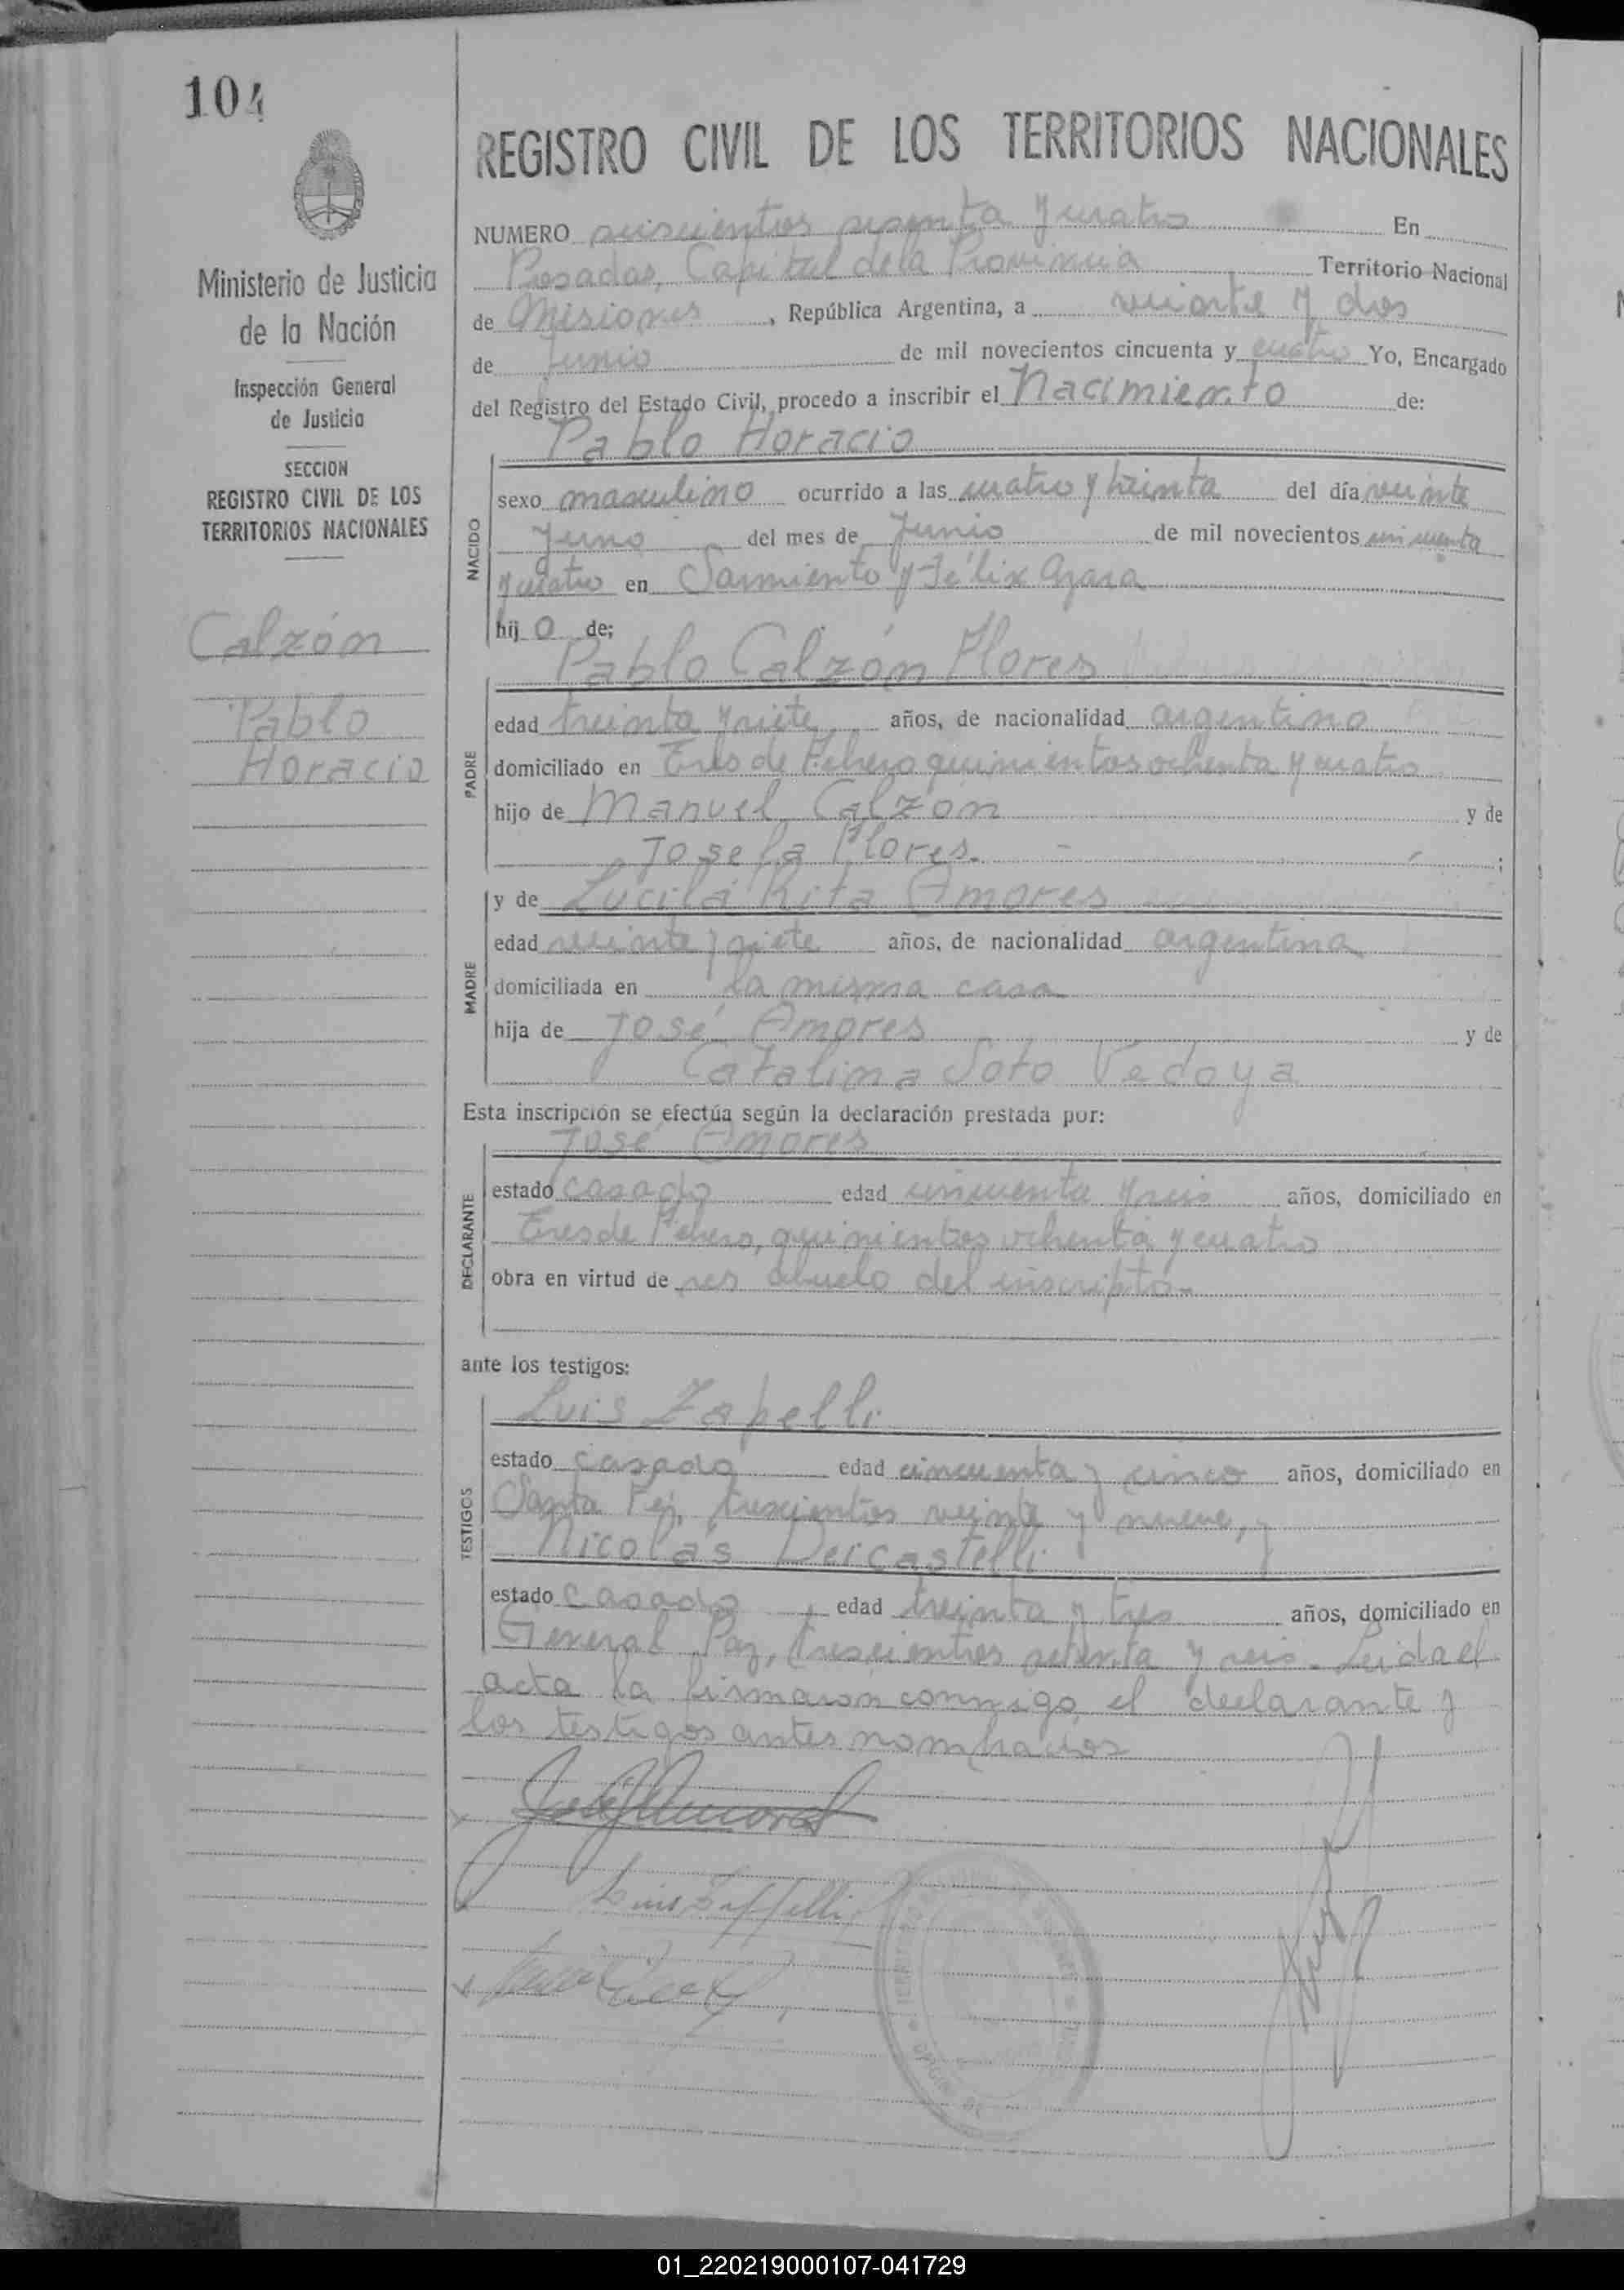 104
REGISTRO CIVIL DE LOS TERRITORIOS NACIONALES
Ministerio de Justicia
de la Nación
Inspección General
de Justicia
SECCION
REGISTRO CIVIL DE LOS
TERRITORIOS NACIONALES
Calzón
Pablo
Horacio
NUMERO seiscientos sesenta y cuatro En
Posadas, Capital de la Provincia Territorio Nacional
de Misiones, República Argentina, a veinte y dos
de Junio de mil novecientos cincuenta y cuatro Yo, Encargado
del Registro del Estado Civil, procedo a inscribir el Nacimiento de:
Pablo Horacio
NACIDO
sexo masculino ocurrido a las cuatro y treinta del día veinte
del mes de Junio de mil novecientos cincuenta
y cuatro en Sarmiento y Félix Azara
hij o de;
Pablo Calzón Flores
PADRE
edad treinta y siete años, de nacionalidad argentino
domiciliado en Tres de Febrero quinientos ochenta y cuatro
hijo de Manuel Calzón y de
Josefa Flores. - ;
MADRE
y de Lucila Rita Amores
edad veinte y siete años, de nacionalidad argentina
domiciliada en la misma casa
hija de José Amores y de
Catalina Soto Vedoya
Esta inscripción se efectúa según la declaración prestada por:
José Amores
DECLARANTE
estado casado edad cincuenta y seis años, domiciliado en
Tres de Febrero, quinientos ochenta y cuatro
obra en virtud de ser abuelo del inscripto.-
ante los testigos:
Luis Zapelli
TESTIGOS
estado casado edad cincuenta y cinco años, domiciliado en
Santa Fé, trescientos veinte y nueve, y
Nicolás Deicastelli
estado casado, edad treinta y tres años, domiciliado en
General Paz, trescientos setenta y seis.- Leida el
acta la firmaron conmigo, el declarante y
los testigos antes nombrados
José Amores
Luis Zappelli
01_220219000107-041729